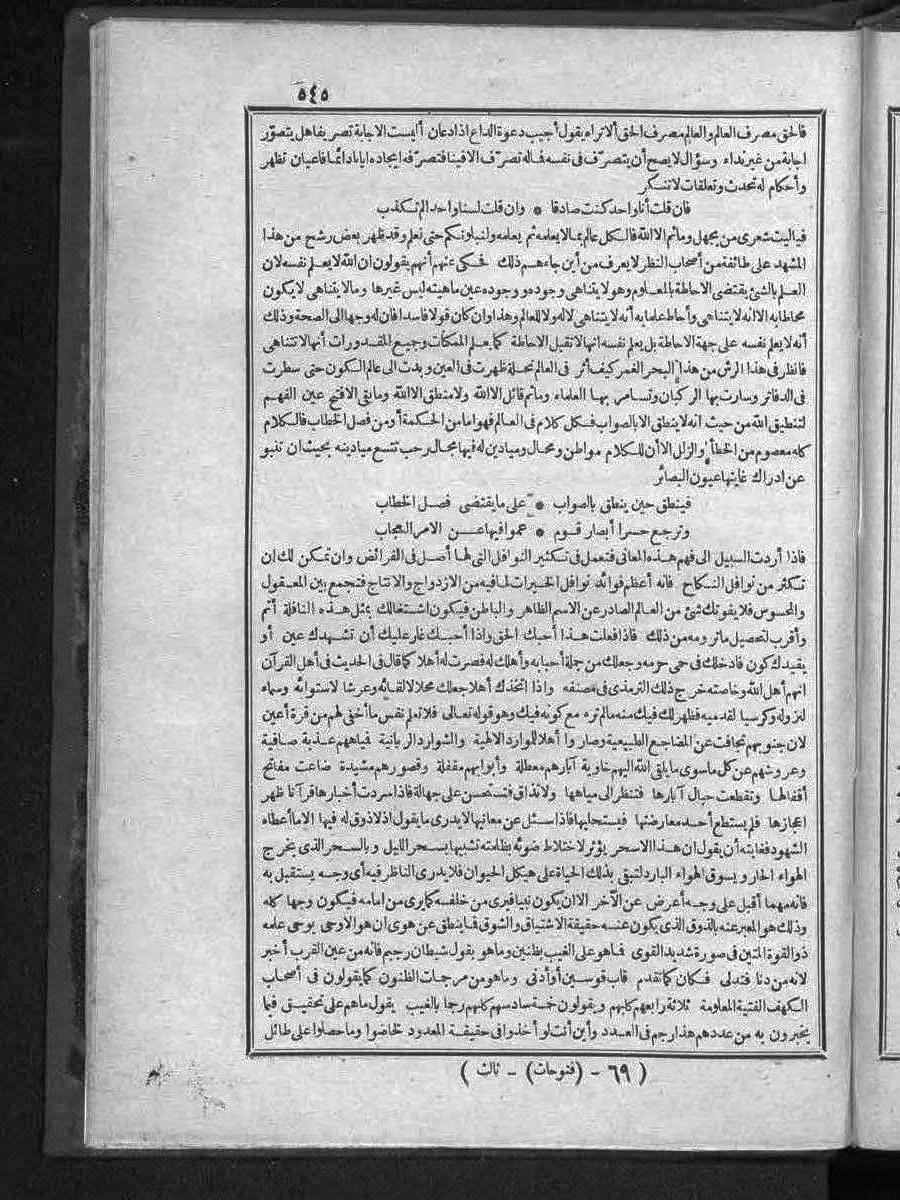 ٥٤٥
فالحق مصرف العالم والعالم مصرف الحق ألا تراه يقول أجيب دعوة الداع اذا دعان أليست الاجابة تصريفا هل يتصوّر
اجابة من غير نداء وسؤال لا يصح أن يتصرّف في نفسه فما له تصرّف الا فينا فتصرّفه ايجاده ايانا دائما فاعيان تظهر
وأحكام له تحدث وتعلقات لا تنكر
فان قلت أنا واحد كنت صادقا * وان قلت لسنا واحد الم تكذب
فياليت شعري من يجهل وما ثم الا الله فالكل عالم بما لا يعلمه ثم يعلمه ولنبلونكم حتى نعلم وقد ظهر بعض رشح من هذا
المشهد على طائفة من أصحاب النظر لا يعرف من أين جاءهم ذلك فحكى عنهم أنهم يقولون ان الله لا يعلم نفسه لان
العلم بالشئ يقتضى الاحاطة بالمعلوم وهو لا يتناهى وجوده ووجوده عين ماهيته ليس غيرها وما لا يتناهى لا يكون
محاطا به الا انه لا يتناهى وأحاط علما به أنه لا يتناهى لا له ولا للعالم وهذا وان كان قولا فاسدا فان له وجها الى الصحة وذلك
أنه لا يعلم نفسه على جهة الاحاطة بل يعلم نفسه انها لا تقبل الاحاطة كما يعلم الممكنات وجميع المقدورات أنها لا تتناهى
فانظر في هذا الرش من هذا البحر الغمر كيف أثر في العالم نحلة ظهرت في العين وبدت الى عالم الكون حتى سطرت
في الدفاتر وسارت بها الركبان وتسامر بها العلماء وما ثم قائل الا الله ولا منطق الا الله وما بقى الا فتح عين الفهم
لتنطيق الله من حيث انه لا ينطق الا بالصواب فكل كلام في العالم فهو اما من الحكمة أو من فصل الخطاب فالكلام
كله معصوم من الخطأ والزلل الا أن للكلام مواطن ومحال وميادين له فيها مجال رحب تتسع ميادينه بحيث ان تنبو
عن ادراك غايتها عيون البصائر
فينطق حين ينطق بالصواب * على ما يقتضى فصل الخطاب
وترجع حسرا أبصار قوم * عموا فيها عن الامر العجاب
فاذا أردت السبيل الى فهم هذه المعانى فتعمل في تكثير النوافل التى لها أصل في الفرائض وان تمكن لك ان
تكثر من نوافل النكاح فانه أعظم فوائد نوافل الخيرات لما فيه من الازدواج والانتاج فتجمع بين المعقول
والمحسوس فلا يفوتك شئ من العالم الصادر عن الاسم الظاهر والباطن فيكون اشتغالك بمثل هذه النافلة أتم
وأقرب لتحصيل ما ترومه من ذلك فاذا فعلت هذا أحبك الحق واذا أحبك غار عليك أن تشهدك عين أو
يقيدك كون فادخلك في حمى حرمه وجعلك من جملة أحبابه وأهلك له فصرت له أهلا كما قال في الحديث في أهل القرآن
انهم أهل الله وخاصته خرج ذلك الترمذى في مصنفه واذا اتخذك أهلا جعلك محلا لالقائه وعرشا لاستوائه وسماء
لنزوله وكرسيا لقدميه فظهر لك فيك منه ما لم تره مع كونه فيك وهو قوله تعالى فلا تعلم نفس ما أخفى لهم من قرة أعين
لان جنوبهم تجافت عن المضاجع الطبيعية وصاروا أهلا للموارد الالهية والشوارد الربانية فياههم عذبة صافية
وعروشهم عن كل ما سوى ما يلقى الله اليهم خاوية آبارهم معطلة وأبوابهم مقفلة وقصورهم مشيدة ضاعت مفاتح
أقفالها وتقطعت حبال آبارها فتنظر الى مياهها ولا تذاق فتستحسن على جهالة فاذا سردت أخبارها قرآنا ظهر
اعجازها فلم يستطع أحد معارضتها فيستحليها فاذا سئل عن معانيها لا يدرى ما يقول اذ لا ذوق له فيها الا ما أعطاه
الشهود فغايته أن يقول ان هذا الا سحر يؤثر لاختلاط ضوئه بظلمته تشبيها بسحر الليل وبالسحر الذى يخرج
الهواء الحار ويسوق الهواء البارد لتبقى بذلك الحياة على هيكل الحيوان فلا يدرى الناظر فيه أى وجه يستقبل به
فانه مهما أقبل على وجه أعرض عن الآخر الا ان يكون نبيا فيرى من خلفه كما يرى من امامه فيكون وجها كله
وذلك هو المعبر عنه بالذوق الذى يكون عنه حقيقة الاشتياق والشوق فما ينطق عن هوى ان هو الا وحى يوحى علمه
ذو القوة المتين في صورة شديد القوى فما هو على الغيب بظنين وما هو بقول شيطان رجيم فانه من عين القرب أخبر
لانه من دنا فتدلى فكان كما تقدم قاب قوسين أو أدنى وما هو من مرجات الظنون كما يقولون في أصحاب
الكهف الفتية المعلومة ثلاثة رابعهم كلبهم ويقولون خمسة سادسهم كلبهم رجما بالغيب يقول ما هم على تحقيق فيما
يخبرون به من عددهم هذا رجم في العدد وأين أنت لو أخذوا في حقيقة المعدود لخاضوا وما حصلوا على طائل
( ٦٩ - (فتوحات) - ثالث )